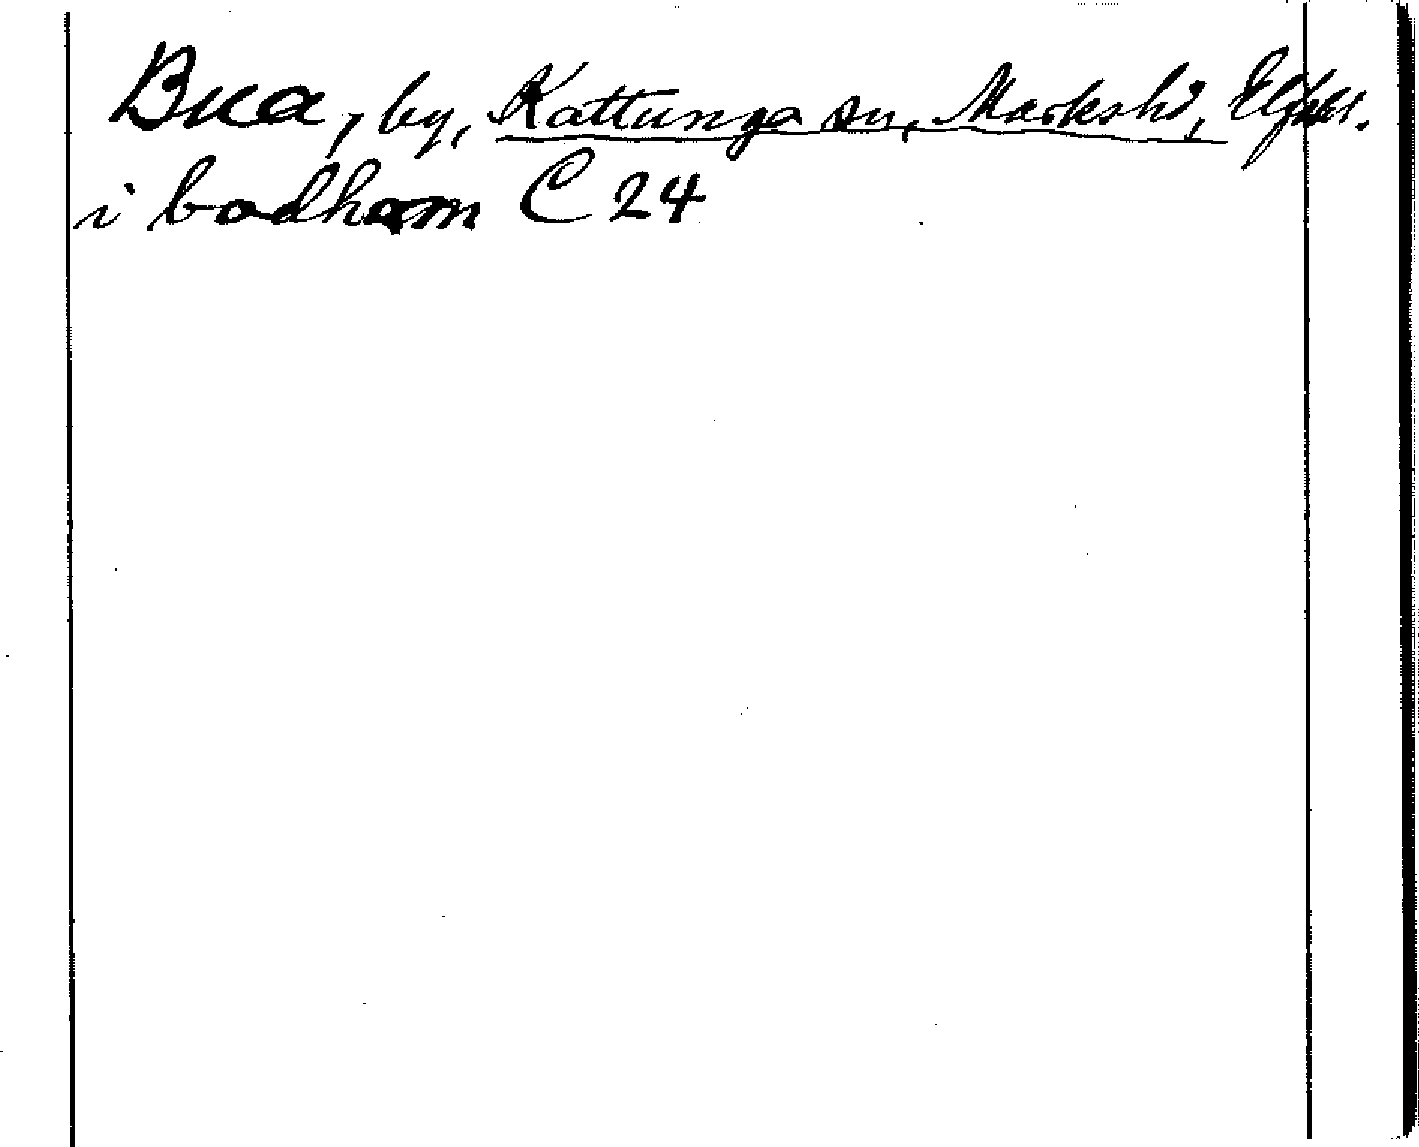 Bua, by, Kattunga sn, Marks hd, Elfsbl.
i bodhom C 24